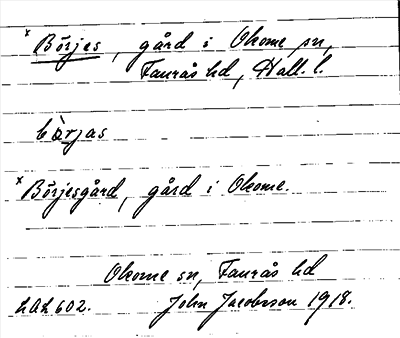 x Börjes, gård i Okome sn,
Faurås hd, Hall. l.
bàrjas
x Börjesgård, gård i Okome.
Okome sn, Faurås hd
LAL 602. John Jacobsson 1918.